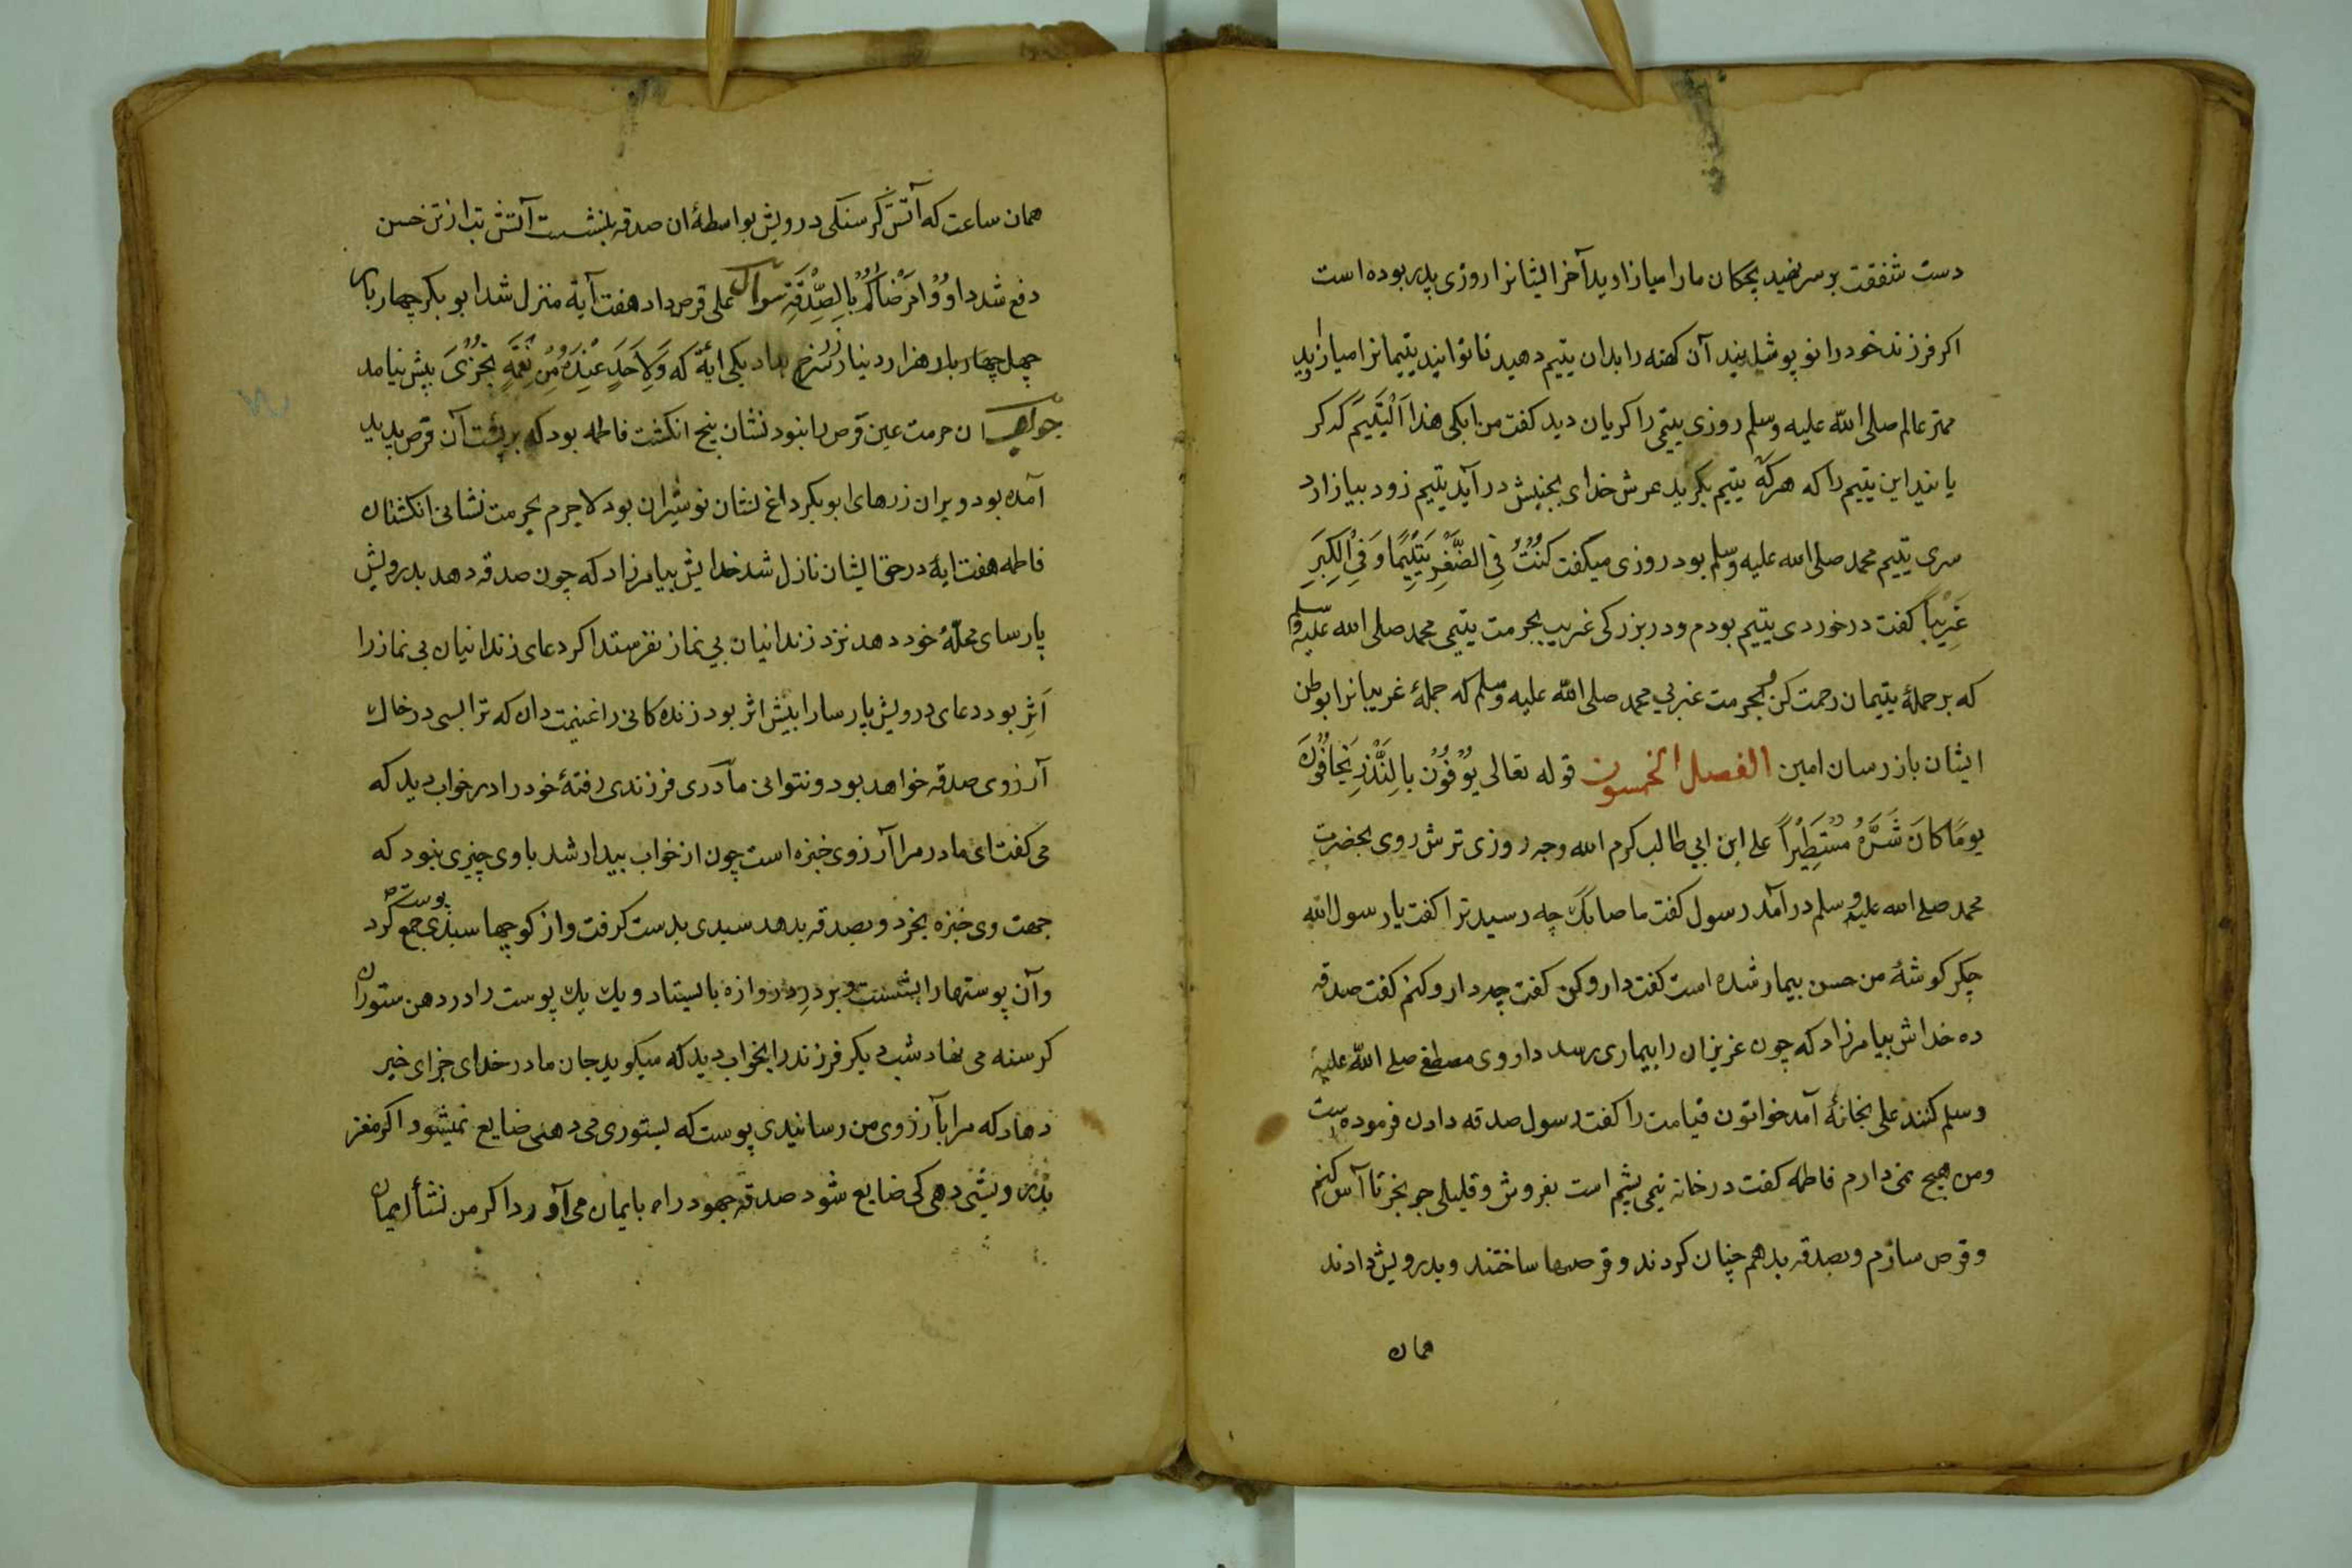 دست شفقت بر سر نهید بچکان ما را میازارید آخر ایشانرا روزی پدر بوده است
اکر فرزند خود را نو پوشانید آن کهنه را بدان یتیم دهید تا توانید یتیمانرا میازارید
مهتر عالم صلی الله علیه وسلم روزی یتیمی را کریان دید کفت من ابکی هذا الیتیم که کر
یانید این یتیم را که هرکه یتیم بکرید عرش خدای بجنبش در آید یتیم زود بیازارد
سری یتیم محمد صلی الله علیه وسلم بود روزی میکفت کُنْتُ فِی الصِّغَرِ یَتِیْمًا وَ فِی الْکِبَرِ
غَرِیْبًا کفت در خوردی یتیم بودم و در بزرکی غریب بحرمت یتیمی محمد صلی الله علیه وسلم
که بر جملهٔ یتیمان رحمت کن و بحرمت غریبی محمد صلی الله علیه وسلم که جملهٔ غریبانرا بوطن
ایشان باز رسان امین الفصل الخمسون قوله تعالی یُوْفُوْنَ بِالنَّذْرِ یَخافُوْنَ
یومًا کانَ شَرُّهُ مُسْتَطِیْراً علی ابن ابی طالب کرم الله وجهه روزی ترش روی بحضرت
محمد صلی الله علیه وسلم در آمد رسول کفت ما صابک چه رسید ترا کفت یا رسول الله
جکر کوشهٔ من حسن بیمار شده است کفت دارو کن کفت چه دارو کنم کفت صدقه
ده خداش بیامرزاد که چون عزیزان را بیماری رسد داروی مصطفی صلی الله علیه
وسلم کنند علی بخانهٔ آمد خواتون قیامت را کفت رسول صدقه دادن فرموده است
ومن هیچ نمی دارم فاطمه کفت در خانه نیمی پشم است بفروش و قلیلی جو بخر تا آس کنم
و قرص سازم و بصدقه بدهم چنان کردند و قرصها ساختند و بدرویش دادند
همان
همان ساعت که آتش کرسنکی درویش بواسطهٔ ان صدقه بنشست آتش تب از تن حسن
دفع شد داوُوْا مَرْضَاکُمْ بِالصَّدَقَةِ سوال علی قرص داد هفت آیة منزل شد ابو بکر چهار بار
چهل چهار بار هزار دینار زر سرخ داد یکی ایة که وَلِاَحَدٍ عِنْدَهُ مِنْ نِعْمَةٍ تُجْزٰی پیش نیامد
جواب ان حرمت عین قرص را نبود نشان پنج انکشت فاطمه بود که بر پشت آن قرص پدید
آمده بود و بران زرهای ابو بکر داغ نشان نوشیران بود لاجرم بحرمت نشانی انکشتان
فاطمه هفت ایة در حق ایشان نازل شد خدایش بیامرزاد که چون صدقه دهد بدرویش
پارسای محلهٔ خود دهد نزد زندانیان بی نماز نفرستد اکر دعای زندانیان بی نماز را
اَثَرِ بود دعای درویش پارسا را بیش اثر بود زنده کانی را غنیمت دان که ترا بسی در خاک
آرزوی صدقه خواهد بود و نتوانی مادری فرزندی رفتهٔ خود را در خواب دید که
می کفت ای مادر مرا آرزوی خبزه است چون از خواب بیدار شد با وی چیزی نبود که
جهت وی خبزه بخرد و بصدقه بدهد سبدی بدست کرفت و از کوچها سبدی پوست جمع کرد
و آن پوستها را بشست و بر در دروازه بایستاد و یک یک پوست را در دهن ستوران
کرسنه می نهاد شب دیکر فرزند را بخواب دید که میکوید جان مادر خدای جزای خیر
دهاد که مرا بآرزوی من رسانیدی پوست که بستوری می دهی ضایع نمیشود اکر مغز
بدرویشی دهی کی ضایع شود صدقه جهود راه بایمان می آورد اکر من